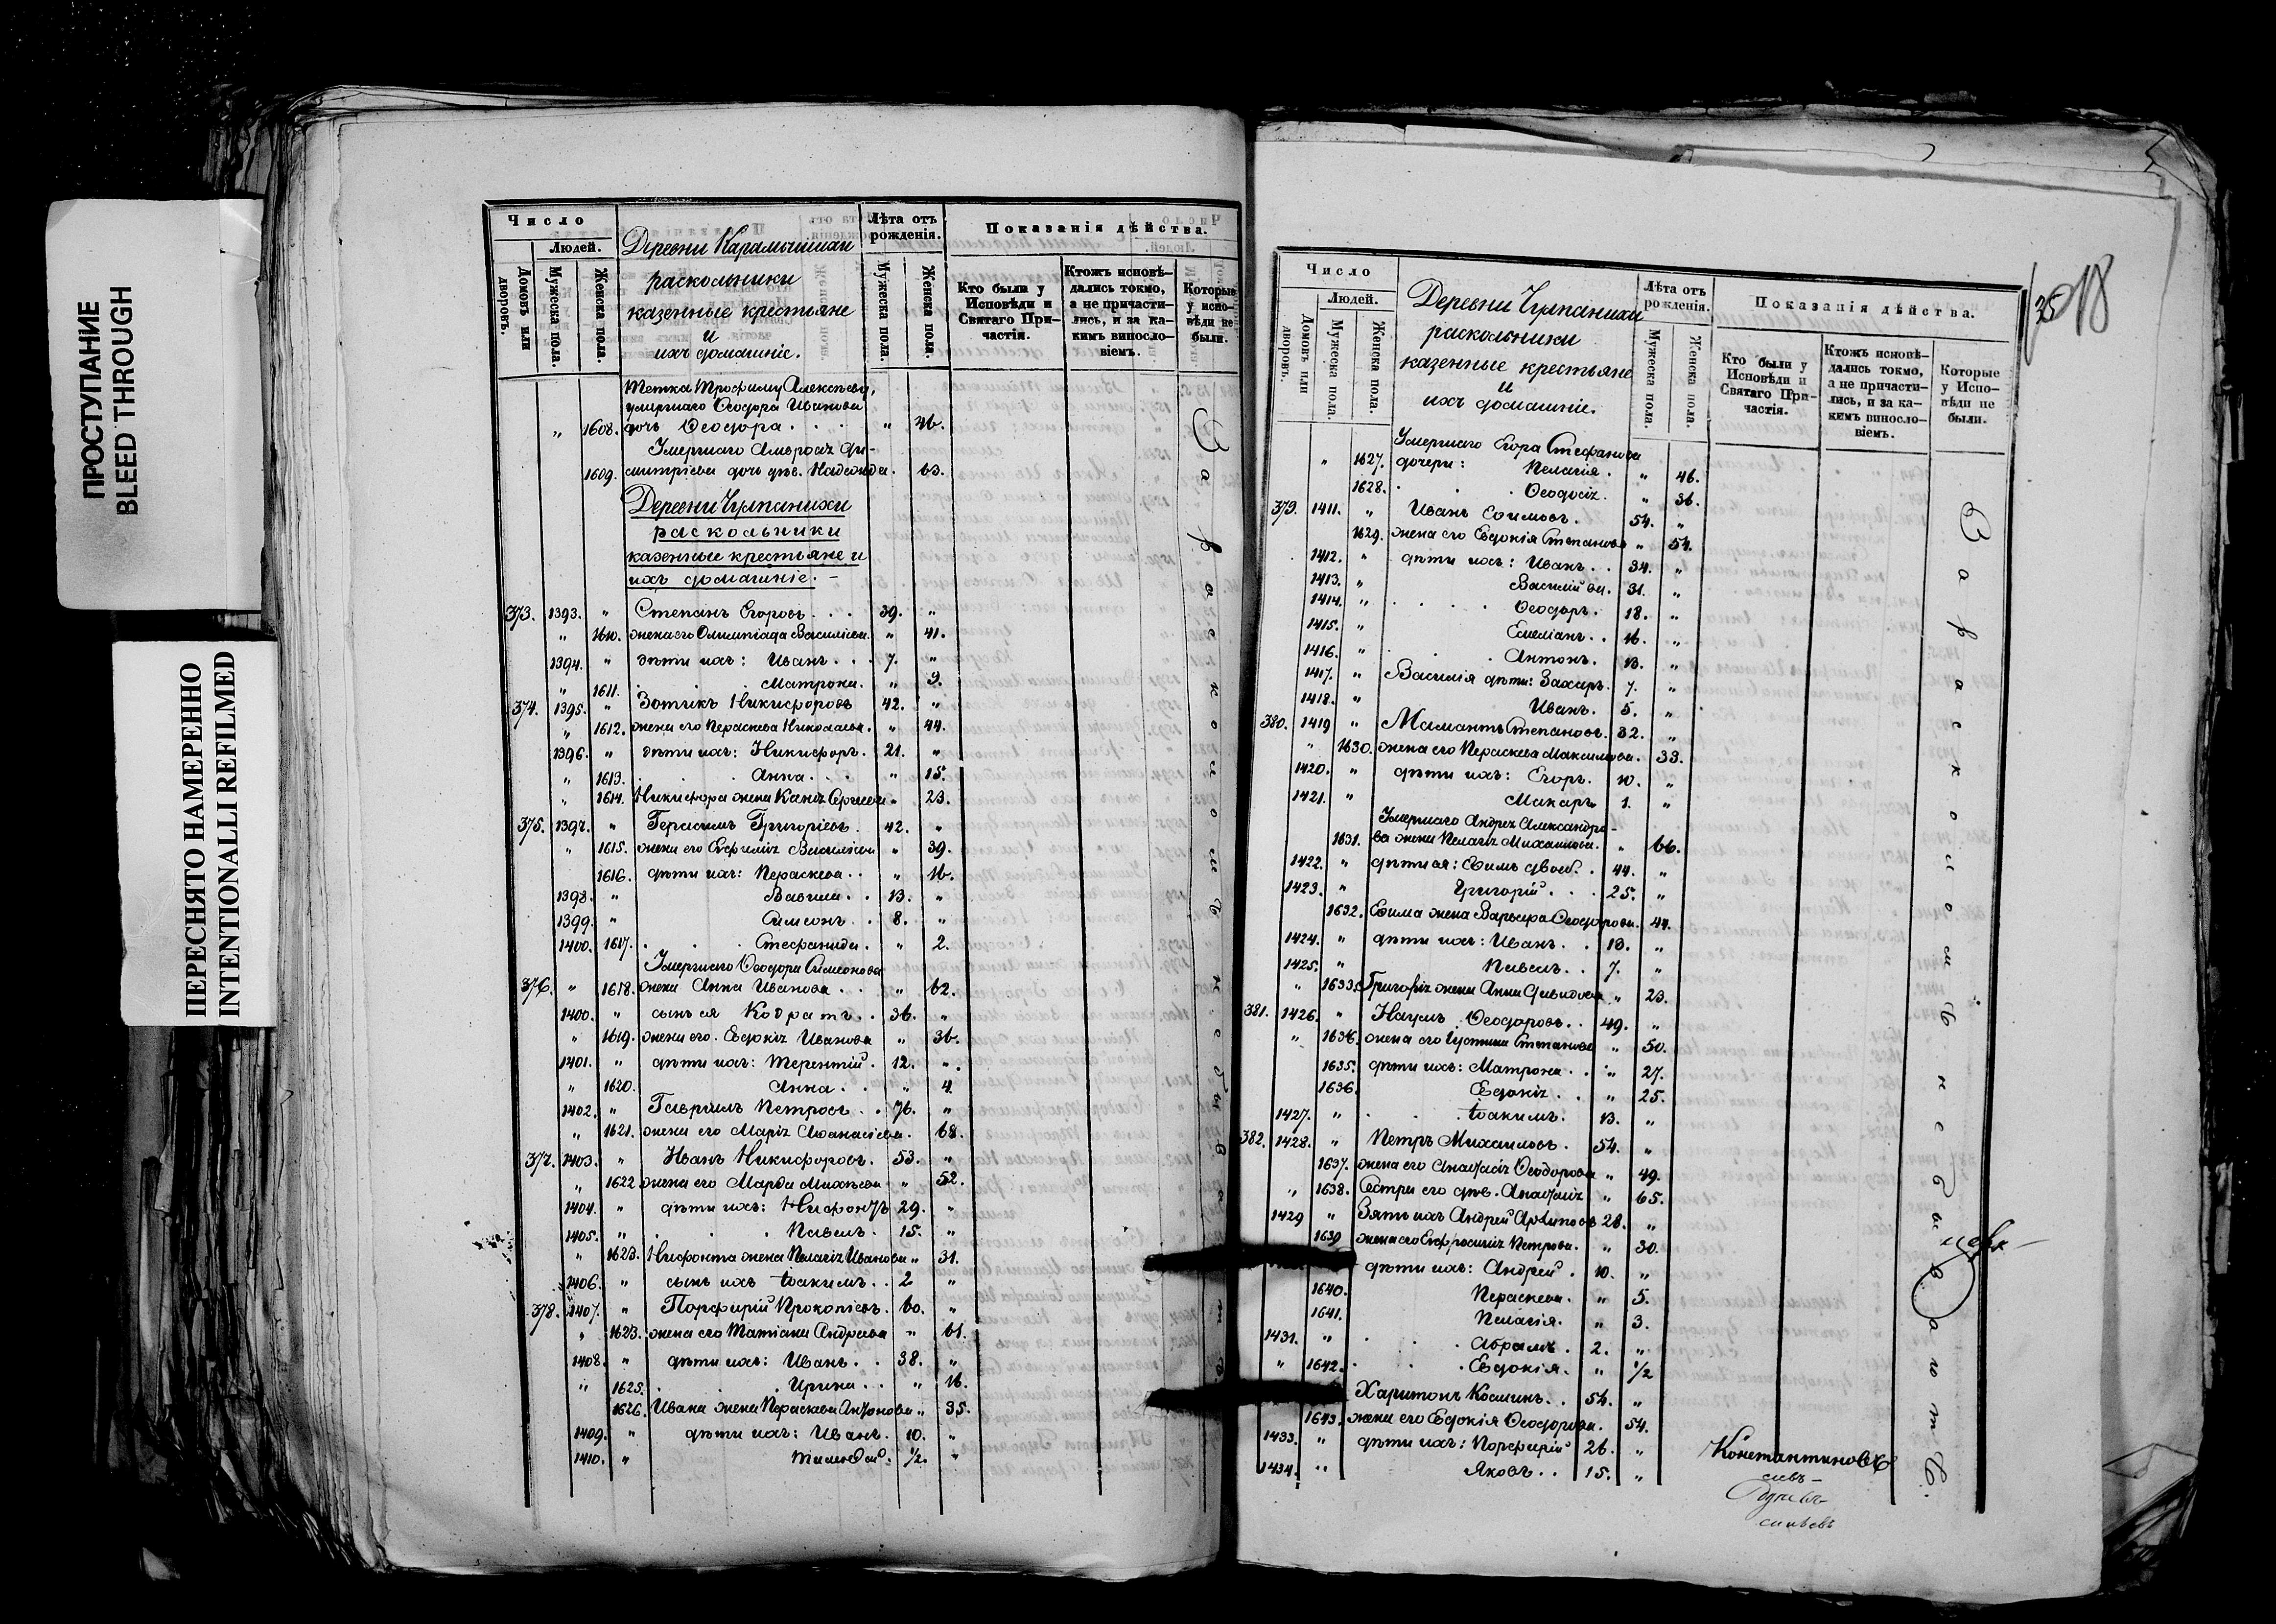 ПРОСТУПАНИЕ
BLEED THROUGH
ПЕРЕСНЯТО НАМЕРЕННО
INTENTIONALLI REFILMED
Число
Людей.
Домовъ или дворовъ.
Мужеска пола.
Женска пола.
Деревни Карамышихи
раскольники
казенные крестьяне
и
ихъ домашніе.
Лѣта отъ рожденія.
Мужеска пола.
Женска пола.
Показанія дѣйства.
Кто были у Исповѣди и Святаго Причастія.
Ктожъ исповѣдались токмо, а не причастились, и за какимъ винословіемъ.
Которые у исповѣди не были.
Тетка Трофиму Алексѣеву,
умершаго Ѳеодора Иванова
" 1608. дочь Ѳеодора . . . " 46.
Умершаго Амвросія Ди-
1609. митріева дочь дѣв. Надежда. 63.
Деревни Чулпанихи
раскольники
казенные крестьяне и
ихъ домашніе. –
373. 1393. " Степанъ Егоровъ . . . 39. "
" 1610. жена его Олимпіада Васильева. " 41.
1394. " дѣти ихъ: Иванъ . . . 7. "
" 1611. . . Матрона. " 9.
374. 1395. " Зотикъ Никифоровъ 42. "
" 1612. жена его Параскева Николаева. " 44.
1396. " дѣти ихъ: Никифоръ. 21. "
" 1613. . . Анна . . . " 15.
" 1614. Никифора жена Ксенія Сергіева " 23.
375. 1397. " Герасимъ Григоріевъ. 42. "
" 1615. жена его Евфимія Васильева " 39.
1616. дѣти ихъ: Параскева . . " 16.
1398. " Вавила . . 13. "
1399. " Симеонъ . . 8. "
1400. 1617. . . Стефанида . " 2.
Умершаго Ѳеодора Симеонова
376. " 1618. жена Анна Иванова . . " 62.
1400. " сынъ ея Кодратъ . . 36. "
" 1619. жена его. Евдокія Иванова " 36.
1401. " дѣти ихъ: Терентій. 12. "
" 1620. Анна . . " 4.
1402. " Гавріилъ Петровъ . . 76. "
" 1621. жена его Марія Аѳанасіева. 68.
377. 1403. " Иванъ Никифоровъ. 53. "
" 1622 жена его Марѳа Михѣева " 52.
1404. " дѣти ихъ: Нифонтъ 29. "
1405. " . . Павелъ . 15. "
" 1623. Нифонта жена Пелагія Иванова " 31.
1406. " сынъ ихъ Іоакимъ . . 2 "
378. 1407. " Порфирій Прокопіевъ. 60. "
" 1623. жена его Татіана Андреева " 61.
1408. " дѣти ихъ: Иванъ . . 38. "
" 1625. . . Ирина . . " 16.
1626. Ивана жена Параскева Антонова " 35.
1409. " дѣти ихъ: Иванъ. 10. "
1410. " Тимоѳей. 1/2. "
За раскольничествомъ не бываютъ
Число
Людей.
Домовъ или дворовъ.
Мужеска пола.
Женска пола.
Деревни Чулпанихи
раскольники
казенные крестьяне
и
ихъ домашніе.
Лѣта отъ рожденія.
Мужеска пола.
Женска пола.
Показанія дѣйства.
Кто были у Исповѣди и Святаго Причастія.
Ктожъ исповѣдались токмо, а не причастились, и за какимъ винословіемъ.
Которые у Исповѣди не были.
Умершаго Егора Стефанова
" 1627. дочери: Пелагія. " 46.
1628. . . Ѳеодосія. " 36.
379. 1411. " Иванъ Еѳимовъ. 54. "
1629. жена его Евдокія Степанова " 54.
1412. " дѣти ихъ: Иванъ . . 34. "
1413. " Василій вд. 31. "
1414. " . . Ѳеодоръ. 18. "
1415. " Емеліанъ . . 16. "
1416. " . . Антонъ. 13. "
1417. " Василія дѣти: Захаръ. 7. "
1418. " Иванъ. 5. "
380. 1419 " Мамантъ Степановъ. 32. "
" 1630. жена его Параскева Максимова. 33.
1420. " дѣти ихъ: Егоръ. 10. "
1421. " Макаръ 1. "
Умершаго Андрея Александро-
1631. ва жена Пелагія Михаилова. " 66.
1422. " дѣти ея: Еѳимъ двоеб. . 44. "
1423. " Григорій . . . 25. "
1632. Еѳима жена Варвара Ѳеодорова. 44.
1424. " дѣти ихъ: Иванъ . . 13. "
1425. " Павелъ . . 7. "
" 1633. Григорія жена Анна Давидова " 23.
381. 1426. " Наумъ Ѳеодоровъ. . 49. "
" 1636. жена его Іустина Степанова " 50.
1635. дѣти ихъ: Матрона . . " 27.
1636. Евдокія . . " 25.
1427. " . . Іоакимъ. 13. "
382. 1428. " Петръ Михаиловъ. 54. "
1637. жена его Анастасія Ѳеодорова " 49.
" 1638. Сестра его дѣв. Анастасія " 65.
1429 " Зять ихъ Андрей Архиповъ 28. "
1639 жена его Евфросинія Петрова. " 30.
дѣти ихъ: Андрей . 10. "
1640. Параскева. " 5.
1641. Пелагія. " 3.
1431. " . . Абрамъ . 2. "
" 1642. . . Евдокія. " 1/2
Харитонъ Косминъ. . 54. "
1643. жена его Евдокія Ѳеодорова. 54.
1433. " дѣти ихъ: Порфирій 26. "
1434. " Яковъ . . 15. "
За раскольничествомъ не бываютъ.
Константиновск